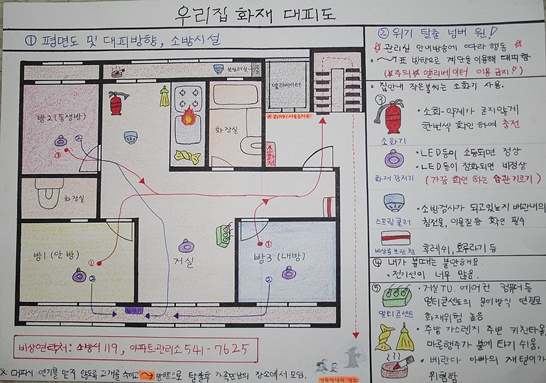 우리집 화재 대피도
① 평면도 및 대피방향, 소방시설
방2(동생방)
화장실
엘리베이터
화장실
방1 (안방)
거실
방3 (내방)
비상연락처: 소방서 119, 아파트관리소 541-7625
② 위기 탈출 넘버 원!
관리실 안내방송에 따라 행동
표 방향으로 계단을 이용해 대피함
엘리베이터 이용 금지!
집안내 작은불씨는 소화기 사용.
③
소화기
· 소화약제가 굳지않게
한번씩 확인하여 충전
화재감지기
· LED등이 소등되면 정상
· LED등이 점화되면 비정상
(가끔 확인 하는 습관 기르기)
스프링클러
· 소방검사가 되고있는지 배관내의
침전물, 이물질 등 확인 필수
비상용품 보관함
후레쉬, 호루라기 등
④ 내가 볼때는 불안해요.
· 전기선이 너무 많음.
⑤
멀티콘센트
· 거실 TV 에어컨 컴퓨터등
멀티콘센트의
화재위험 높음
· 주방 가스렌지 주변 키친타올,
마른행주가 불에 타기 쉬움.
· 베란다 아빠의 재떨이가
위험함